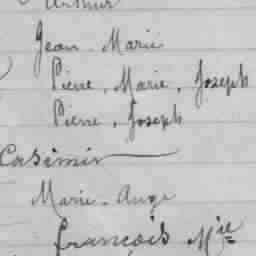 Arthur
Jean - Marie
Pierre, Marie, Joseph
Pierre, Joseph
Casimir
Marie - Ange
François Mie